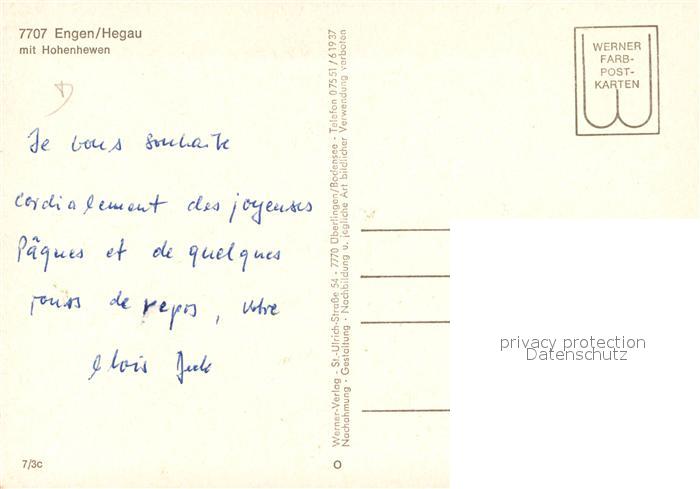 7707 Engen/Hegau
mit Hohenhewen
Je vous souhaite
cordialement des joyeuses
Pâques et de quelques
jours de repos, votre
Werner-Verlag - St.-Ulrich-Straße 54 - 7770 Überlingen/Bodensee - Telefon 07551/61937
Nachahmung · Gestaltung · Nachbildung u. jegliche Art bildlicher Verwendung verboten
WERNER
FARB-
POST-
KARTEN
privacy protection
Datenschutz
7/3c